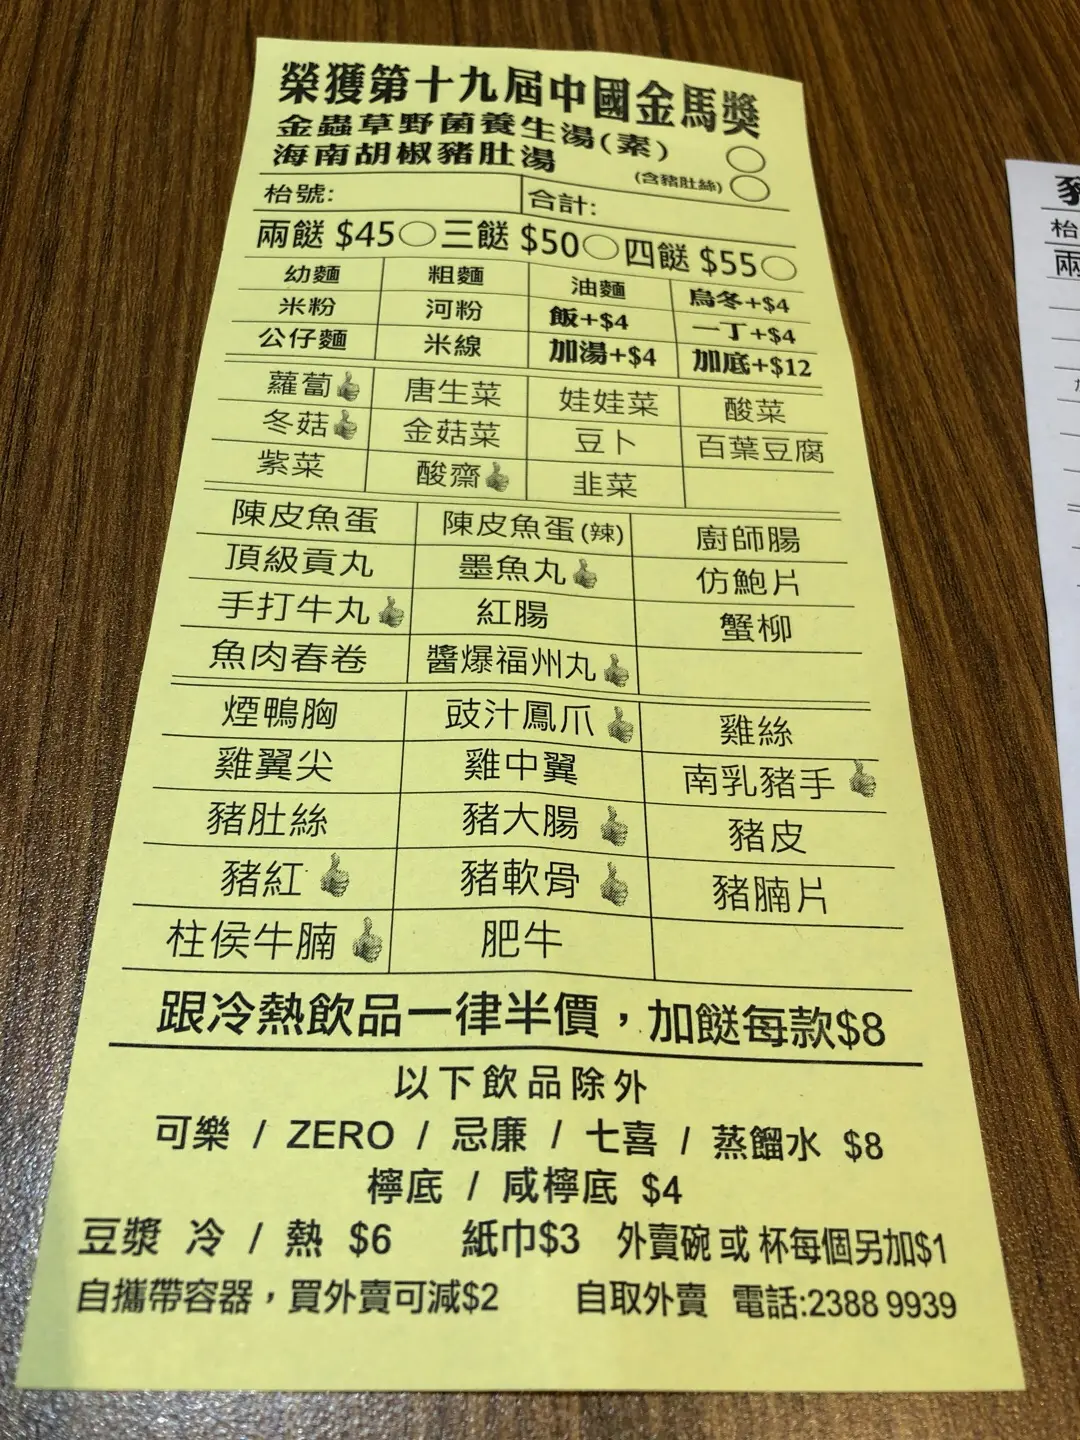 榮獲第十九屆中國金馬獎
金蟲草野菌養生湯(素)
海南胡椒豬肚湯 (含豬肚絲)
枱號: 合計:
兩餸 $45 三餸 $50 四餸 $55
幼麵 粗麵 油麵 烏冬+$4
米粉 河粉 飯+$4 一丁+$4
公仔麵 米線 加湯+$4 加底+$12
蘿蔔 唐生菜 娃娃菜 酸菜
冬菇 金菇菜 豆卜 百葉豆腐
紫菜 酸齋 韭菜
陳皮魚蛋 陳皮魚蛋(辣) 廚師腸
頂級貢丸 墨魚丸 仿鮑片
手打牛丸 紅腸 蟹柳
魚肉春卷 醬爆福州丸
煙鴨胸 豉汁鳳爪 雞絲
雞翼尖 雞中翼 南乳豬手
豬肚絲 豬大腸 豬皮
豬紅 豬軟骨 豬腩片
柱侯牛腩 肥牛
跟冷熱飲品一律半價，加餸每款$8
以下飲品除外
可樂 / ZERO / 忌廉 / 七喜 / 蒸餾水 $8
檸底 / 咸檸底 $4
豆漿 冷 / 熱 $6 紙巾$3 外賣碗或杯每個另加$1
自攜帶容器，買外賣可減$2 自取外賣 電話:2388 9939
枱
兩